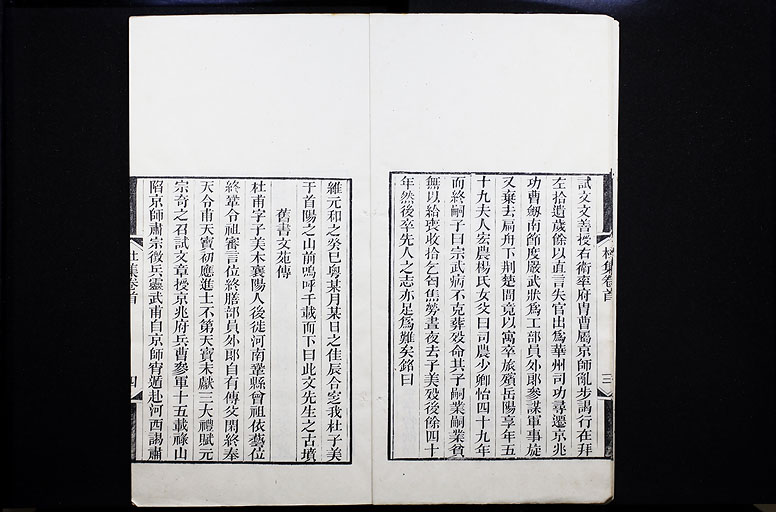 試文文善授右衛率府冑曹屬京師亂步謁行在拜
左拾遺歲餘以直言失官出爲華州司功尋遷京兆
功曹劒南節度嚴武狀爲工部員外郎參謀軍事旋
又棄去扁舟下荆楚間竟以寓卒旅殯岳陽享年五
十九夫人宏農楊氏女父曰司農少卿怡四十九年
而終嗣子曰宗武病不克葬歿命其子嗣業嗣業貧
無以給喪收拾乞匄焦勞晝夜去子美歿後餘四十
年然後卒先人之志亦足爲難矣銘曰
杜集卷首
三
維元和之癸巳粤某月某日之佳辰合窆我杜子美
于首陽之山前嗚呼千載而下曰此文先生之古墳
舊書文苑傳
杜甫字子美本襄陽人後徙河南鞏縣曾祖依藝位
終鞏令祖審言位終膳部員外郎自有傳父閑終奉
天令甫天寶初應進士不第天寶末獻三大禮賦元
宗奇之召試文章授京兆府兵曹參軍十五載祿山
陷京師肅宗徵兵靈武甫自京師宵遁赴河西謁肅
杜集卷首
四